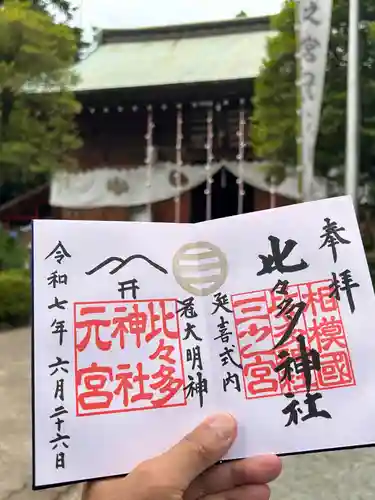 之宮
奉拝
比々多神社
相模國
三之宮
延喜式内
冠大明神
比々多
神社
元宮
令和七年六月二十六日